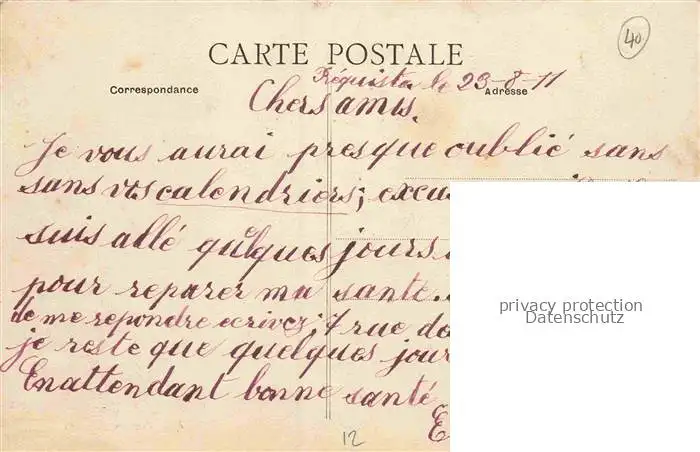 40
CARTE POSTALE
Réquista le 23-8-11
Correspondance
Adresse
Chers amis,
Je vous aurai presque oublié sans
sans vos calendriers; excus
suis allé quelques jours
pour reparer ma santé.
de me repondre ecrivez; 7 rue do
je reste que quelques jour
En attendant bonne santé
E
privacy protection
Datenschutz
12